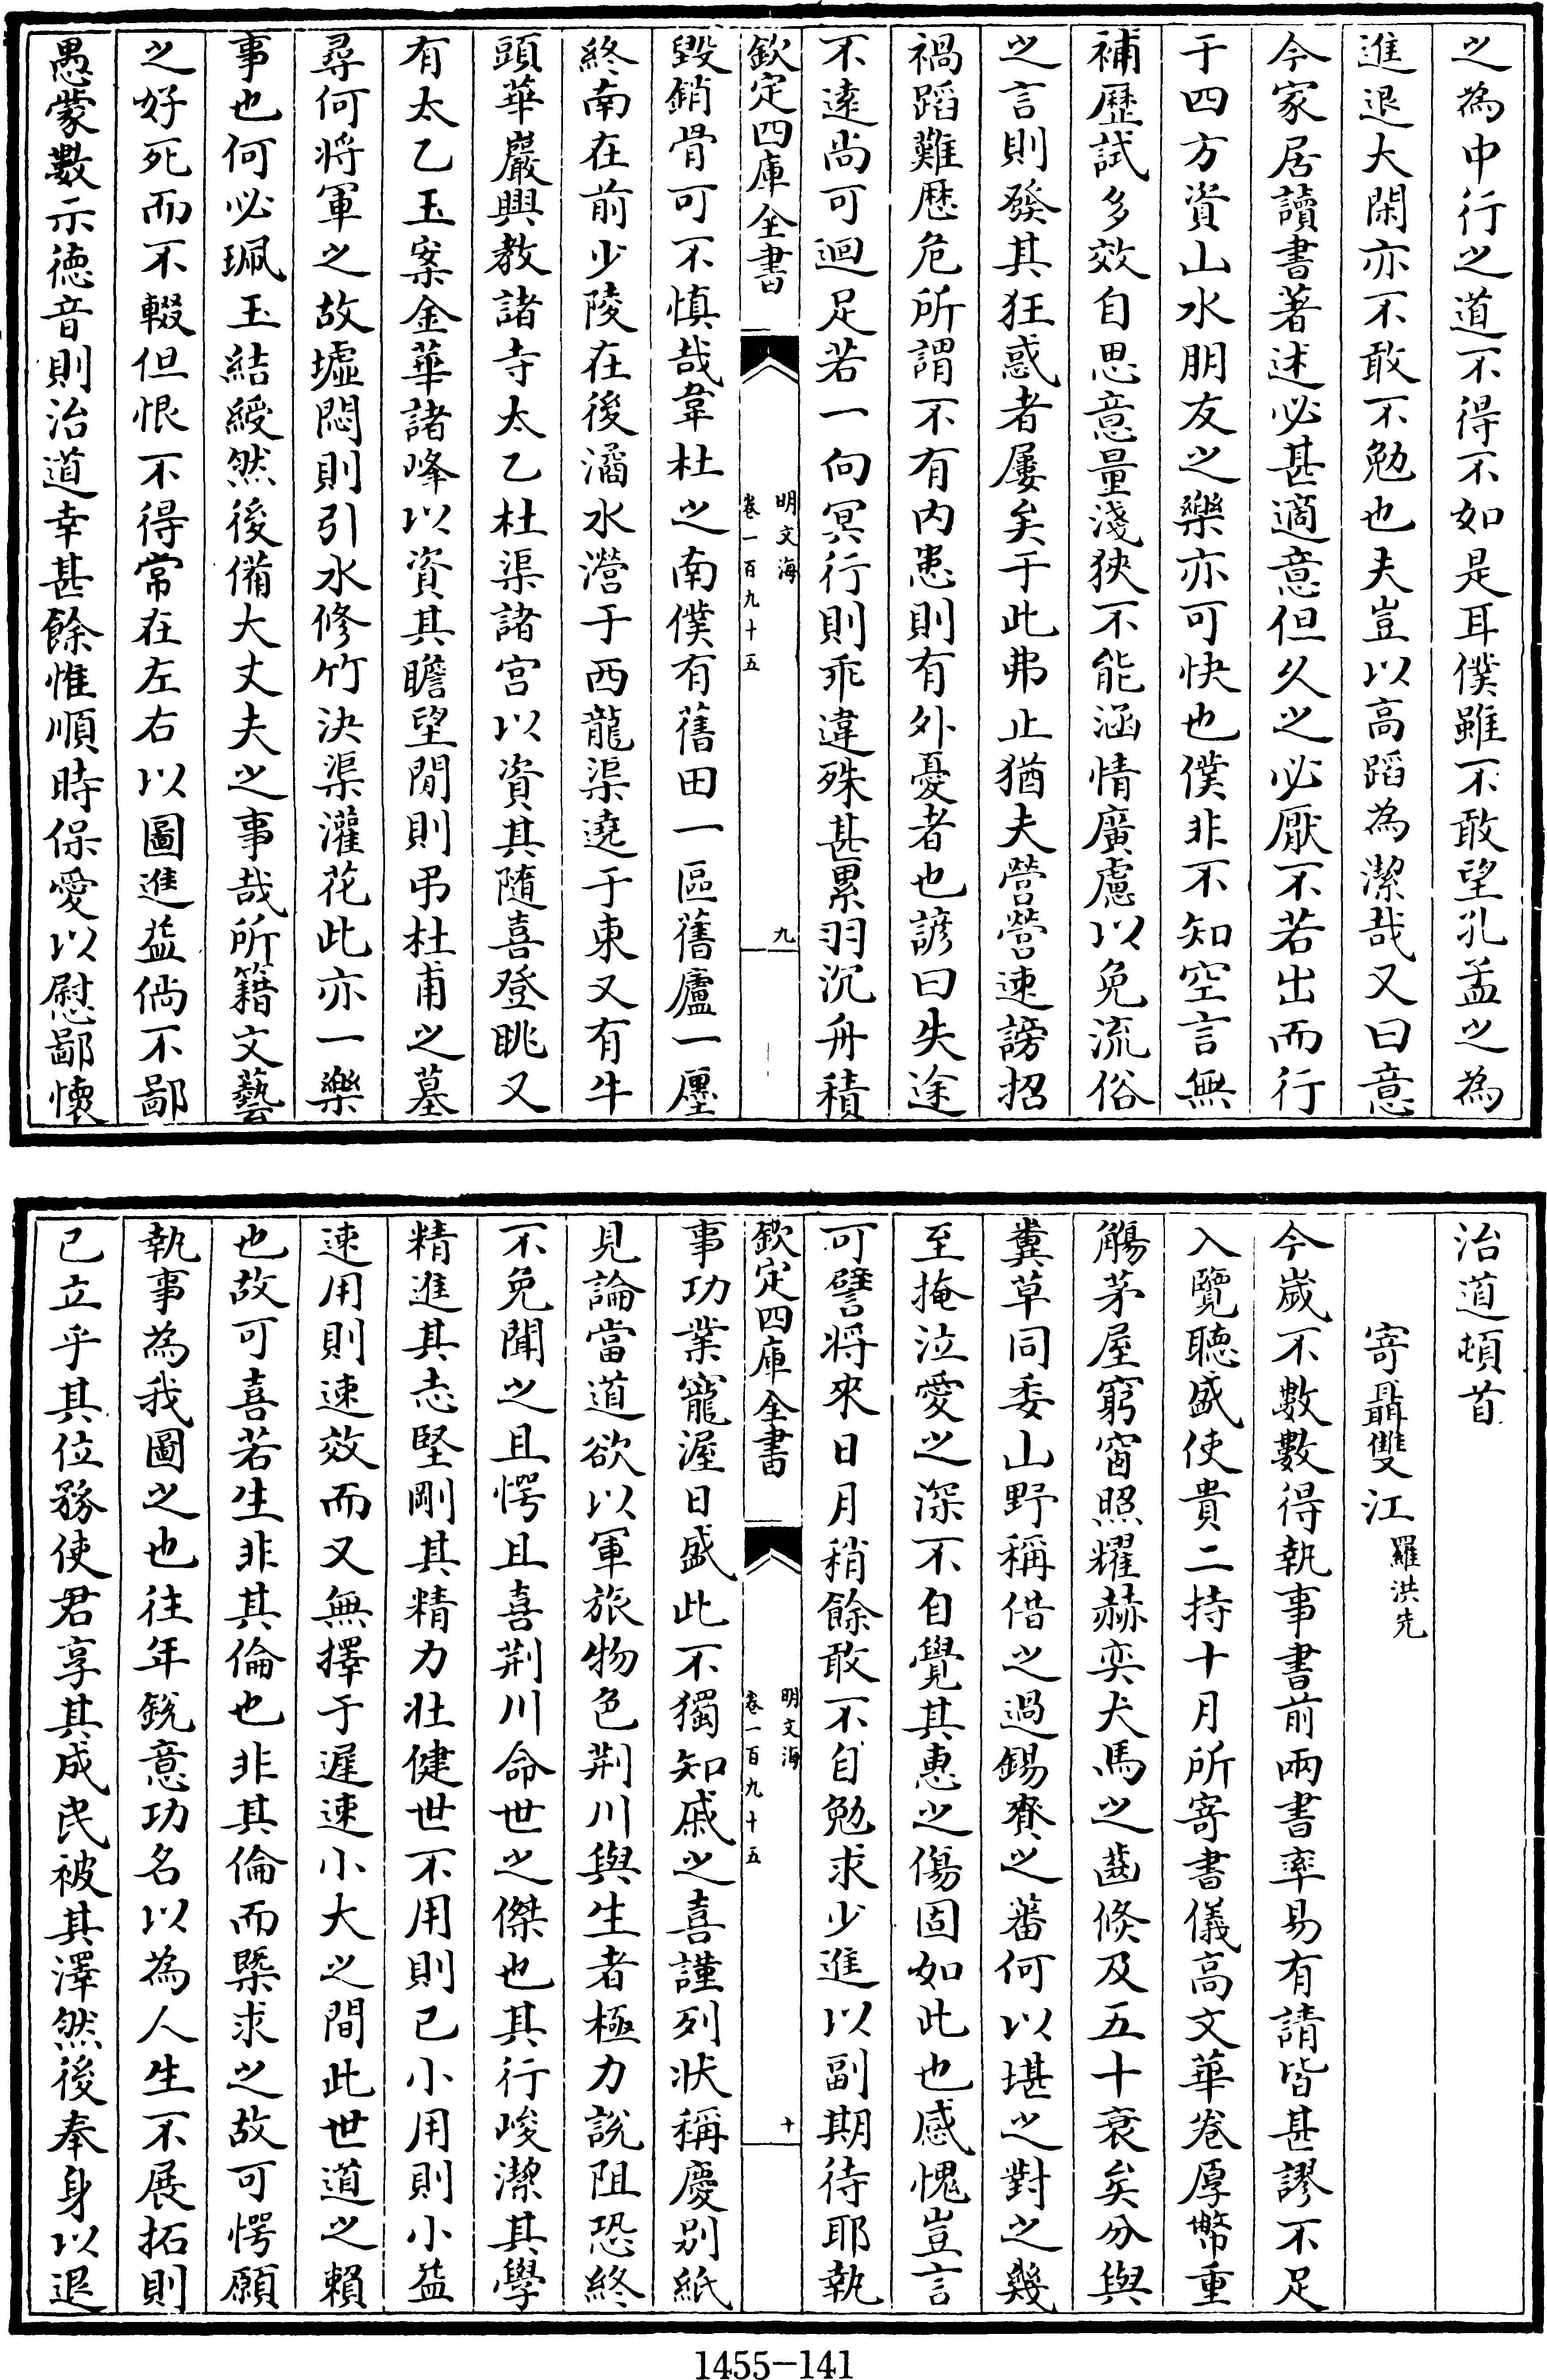 之為中行之道不得不如是耳僕雖不敢望孔孟之為
進退大閑亦不敢不勉也夫豈以高蹈為潔哉又曰意
今家居讀書著述必甚適意但久之必厭不若出而行
于四方資山水朋友之樂亦可快也僕非不知空言無
補歷試多效自思意量淺狹不能涵情廣慮以免流俗
之言則發其狂惑者屢矣于此弗止猶夫營營速謗招
禍蹈難歷危所謂不有内患則有外憂者也諺曰失途
不遠尚可迴足若一向冥行則乖違殊甚累羽沉舟積
欽定四庫全書
明文海
卷一百九十五
九
毀銷骨可不慎哉韋杜之南僕有舊田一區舊廬一廛
終南在前少陵在後潏水瀅于西龍渠遶于東又有牛
頭華巖興教諸寺太乙杜渠諸宫以資其隨喜登眺又
有太乙玉案金華諸峰以資其瞻望閒則弔杜甫之墓
尋何將軍之故墟悶則引水修竹決渠灌花此亦一樂
事也何必珮玉結綬然後備大丈夫之事哉所籍文藝
之好死而不輟但恨不得常在左右以圖進益倘不鄙
愚蒙數示徳音則治道幸甚餘惟順時保愛以慰鄙懷
治道頓首
寄聶雙江 羅洪先
今嵗不數數得執事書前兩書率易有請皆甚謬不足
入覽聽盛使貴二持十月所寄書儀高文華卷厚幣重
觴茅屋窮窗照耀赫奕犬馬之齒倐及五十衰矣分與
糞草同委山野稱借之過錫賚之蕃何以堪之對之幾
至掩泣愛之深不自覺其惠之傷固如此也感愧豈言
可譬將來日月稍餘敢不自勉求少進以副期待耶執
欽定四庫全書
明文海
卷一百九十五
十
事功業寵渥日盛此不獨知戚之喜謹列狀稱慶别紙
見論當道欲以軍旅物色荆川與生者極力説阻恐終
不免聞之且愕且喜荆川命世之傑也其行峻潔其學
精進其志堅剛其精力壯健世不用則已小用則小益
速用則速效而又無擇于遲速小大之間此世道之賴
也故可喜若生非其倫也非其倫而槩求之故可愕願
執事為我圖之也往年銳意功名以為人生不展拓則
已立乎其位務使君享其成民被其澤然後奉身以退
1455-141